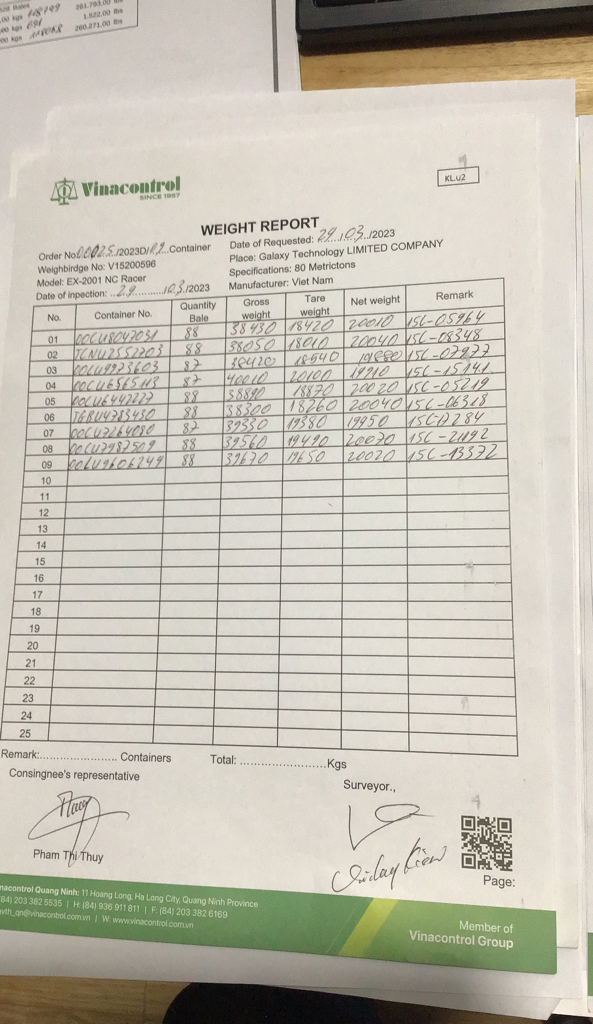 261.793,00 lbs
,00 kgs 118799 1.522,00 lbs
00 kgs 691 260.271,00 lbs
00 kgs 118058
Vinacontrol
SINCE 1957
KLu2
WEIGHT REPORT
Order No 00025/2023D/ Container
Date of Requested: 29/03/2023
Weighbirdge No: V15200596
Place: Galaxy Technology LIMITED COMPANY
Model: EX-2001 NC Racer
Specifications: 80 Metrictons
Date of inpection: ..29........./03/2023
Manufacturer: Viet Nam
No. Container No. Quantity Bale Gross weight Tare weight Net weight Remark
01 OOCU8047031 88 38430 18420 20010 15C-05964
02 TCNU2552203 88 38050 18010 20040 15C-08348
03 OOCU9973603 87 38420 18540 19880 15C-07977
04 OOCU6565113 87 40010 20100 19910 15C-15141
05 OOCU6447227 88 38890 18870 20020 15C-05219
06 TGBU4783430 88 38300 18260 20040 15C-06318
07 OOCU7264080 87 39330 19380 19950
08 OOCU7987509 88 39560 19490 20070 15C-21192
09 OOLU9606249 88 39670 19650 20020 15C-13372
10
11
12
13
14
15
16
17
18
19
20
21
22
23
24
25
Remark:.................... Containers Total: ......................Kgs
Consingnee's representative
Surveyor.,
Pham Thi Thuy
Page:
nacontrol Quang Ninh: 11 Hoang Long, Ha Long City, Quang Ninh Province
84) 203 382 5535 | H: (84) 936 911 811 | F: (84) 203 382 6169
vth_qn@vinacontrol.com.vn | W: www.vinacontrol.com.vn
Member of
Vinacontrol Group